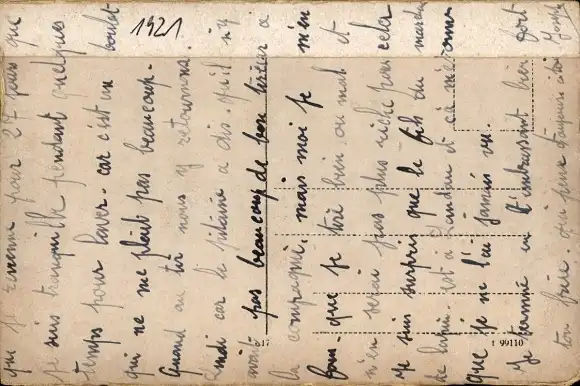 1921
qui je renonce pour 27 jours que
je suis tranquille pendant quelques
temps pour laver. car c'est un boulot
qui ne me plait pas beaucoup.
Quand au tir nous y retournons
mai car le pitaine a dis qu'il n'y
avait pas beaucoup de bon tireur a
la compagnie, mais moi je m'en
fou. que je tire bien ou mal et
n'en serai pas plus riche pour cela
Je suis surpris que le fils du marchand
de est a et ca m'étonne
que je ne l'ai jamais vu.
Je termine en t'embrassant bien fort
ton frère qui pense toujours à toi Joseph
517
t 99110